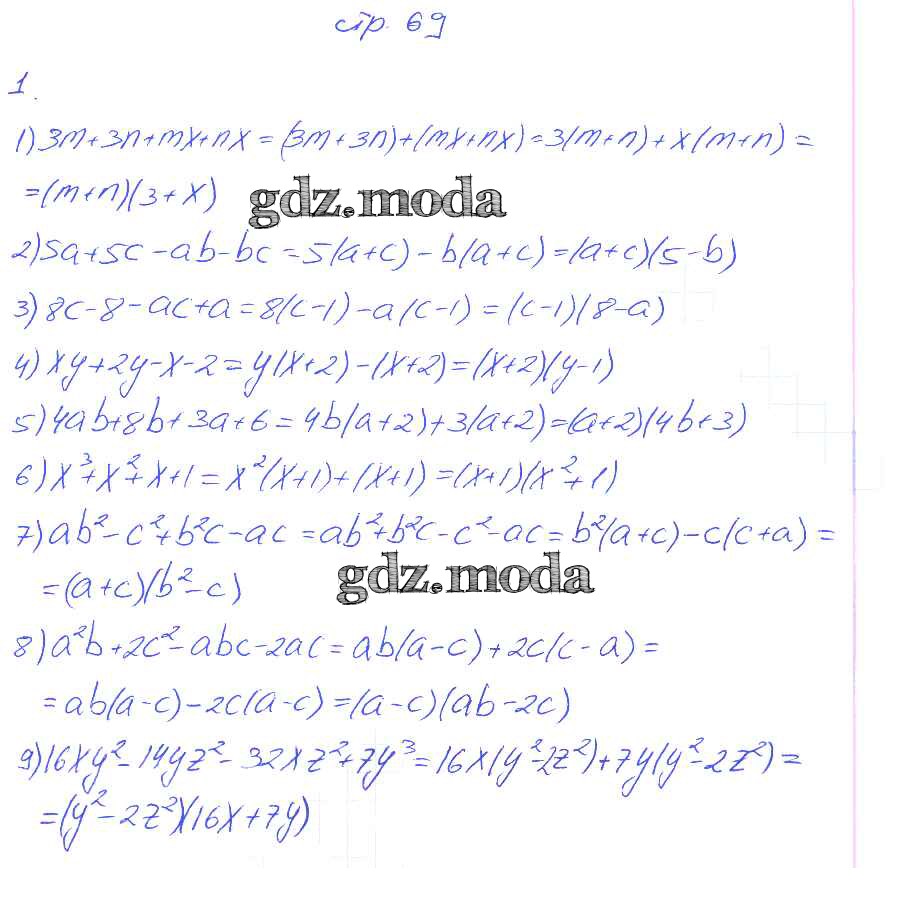 стр. 69
1.
1) 3m+3n+mx+nx = (3m+3n)+(mx+nx) = 3(m+n)+x(m+n) =
=(m+n)(3+x)
gdz.moda
2) 5a+5c-ab-bc = 5(a+c)-b(a+c)=(a+c)(5-b)
3) 8c-8-ac+a = 8(c-1)-a(c-1) = (c-1)(8-a)
4) xy+2y-x-2 = y(x+2)-(x+2)=(x+2)(y-1)
5) 4ab+8b+3a+6 = 4b(a+2)+3(a+2)=(a+2)(4b+3)
6) x³+x²+x+1 = x²(x+1)+(x+1) = (x+1)(x²+1)
7) ab²-c²+b²c-ac = ab²+b²c-c²-ac = b²(a+c)-c(c+a) =
=(a+c)(b²-c)
gdz.moda
8) a²b+2c²-abc-2ac = ab(a-c)+2c(c-a) =
= ab(a-c)-2c(a-c) = (a-c)(ab-2c)
9) 16xy²-14yz²-32xz²+7y³ = 16x(y²-2z²)+7y(y²-2z²) =
=(y²-2z²)(16x+7y)